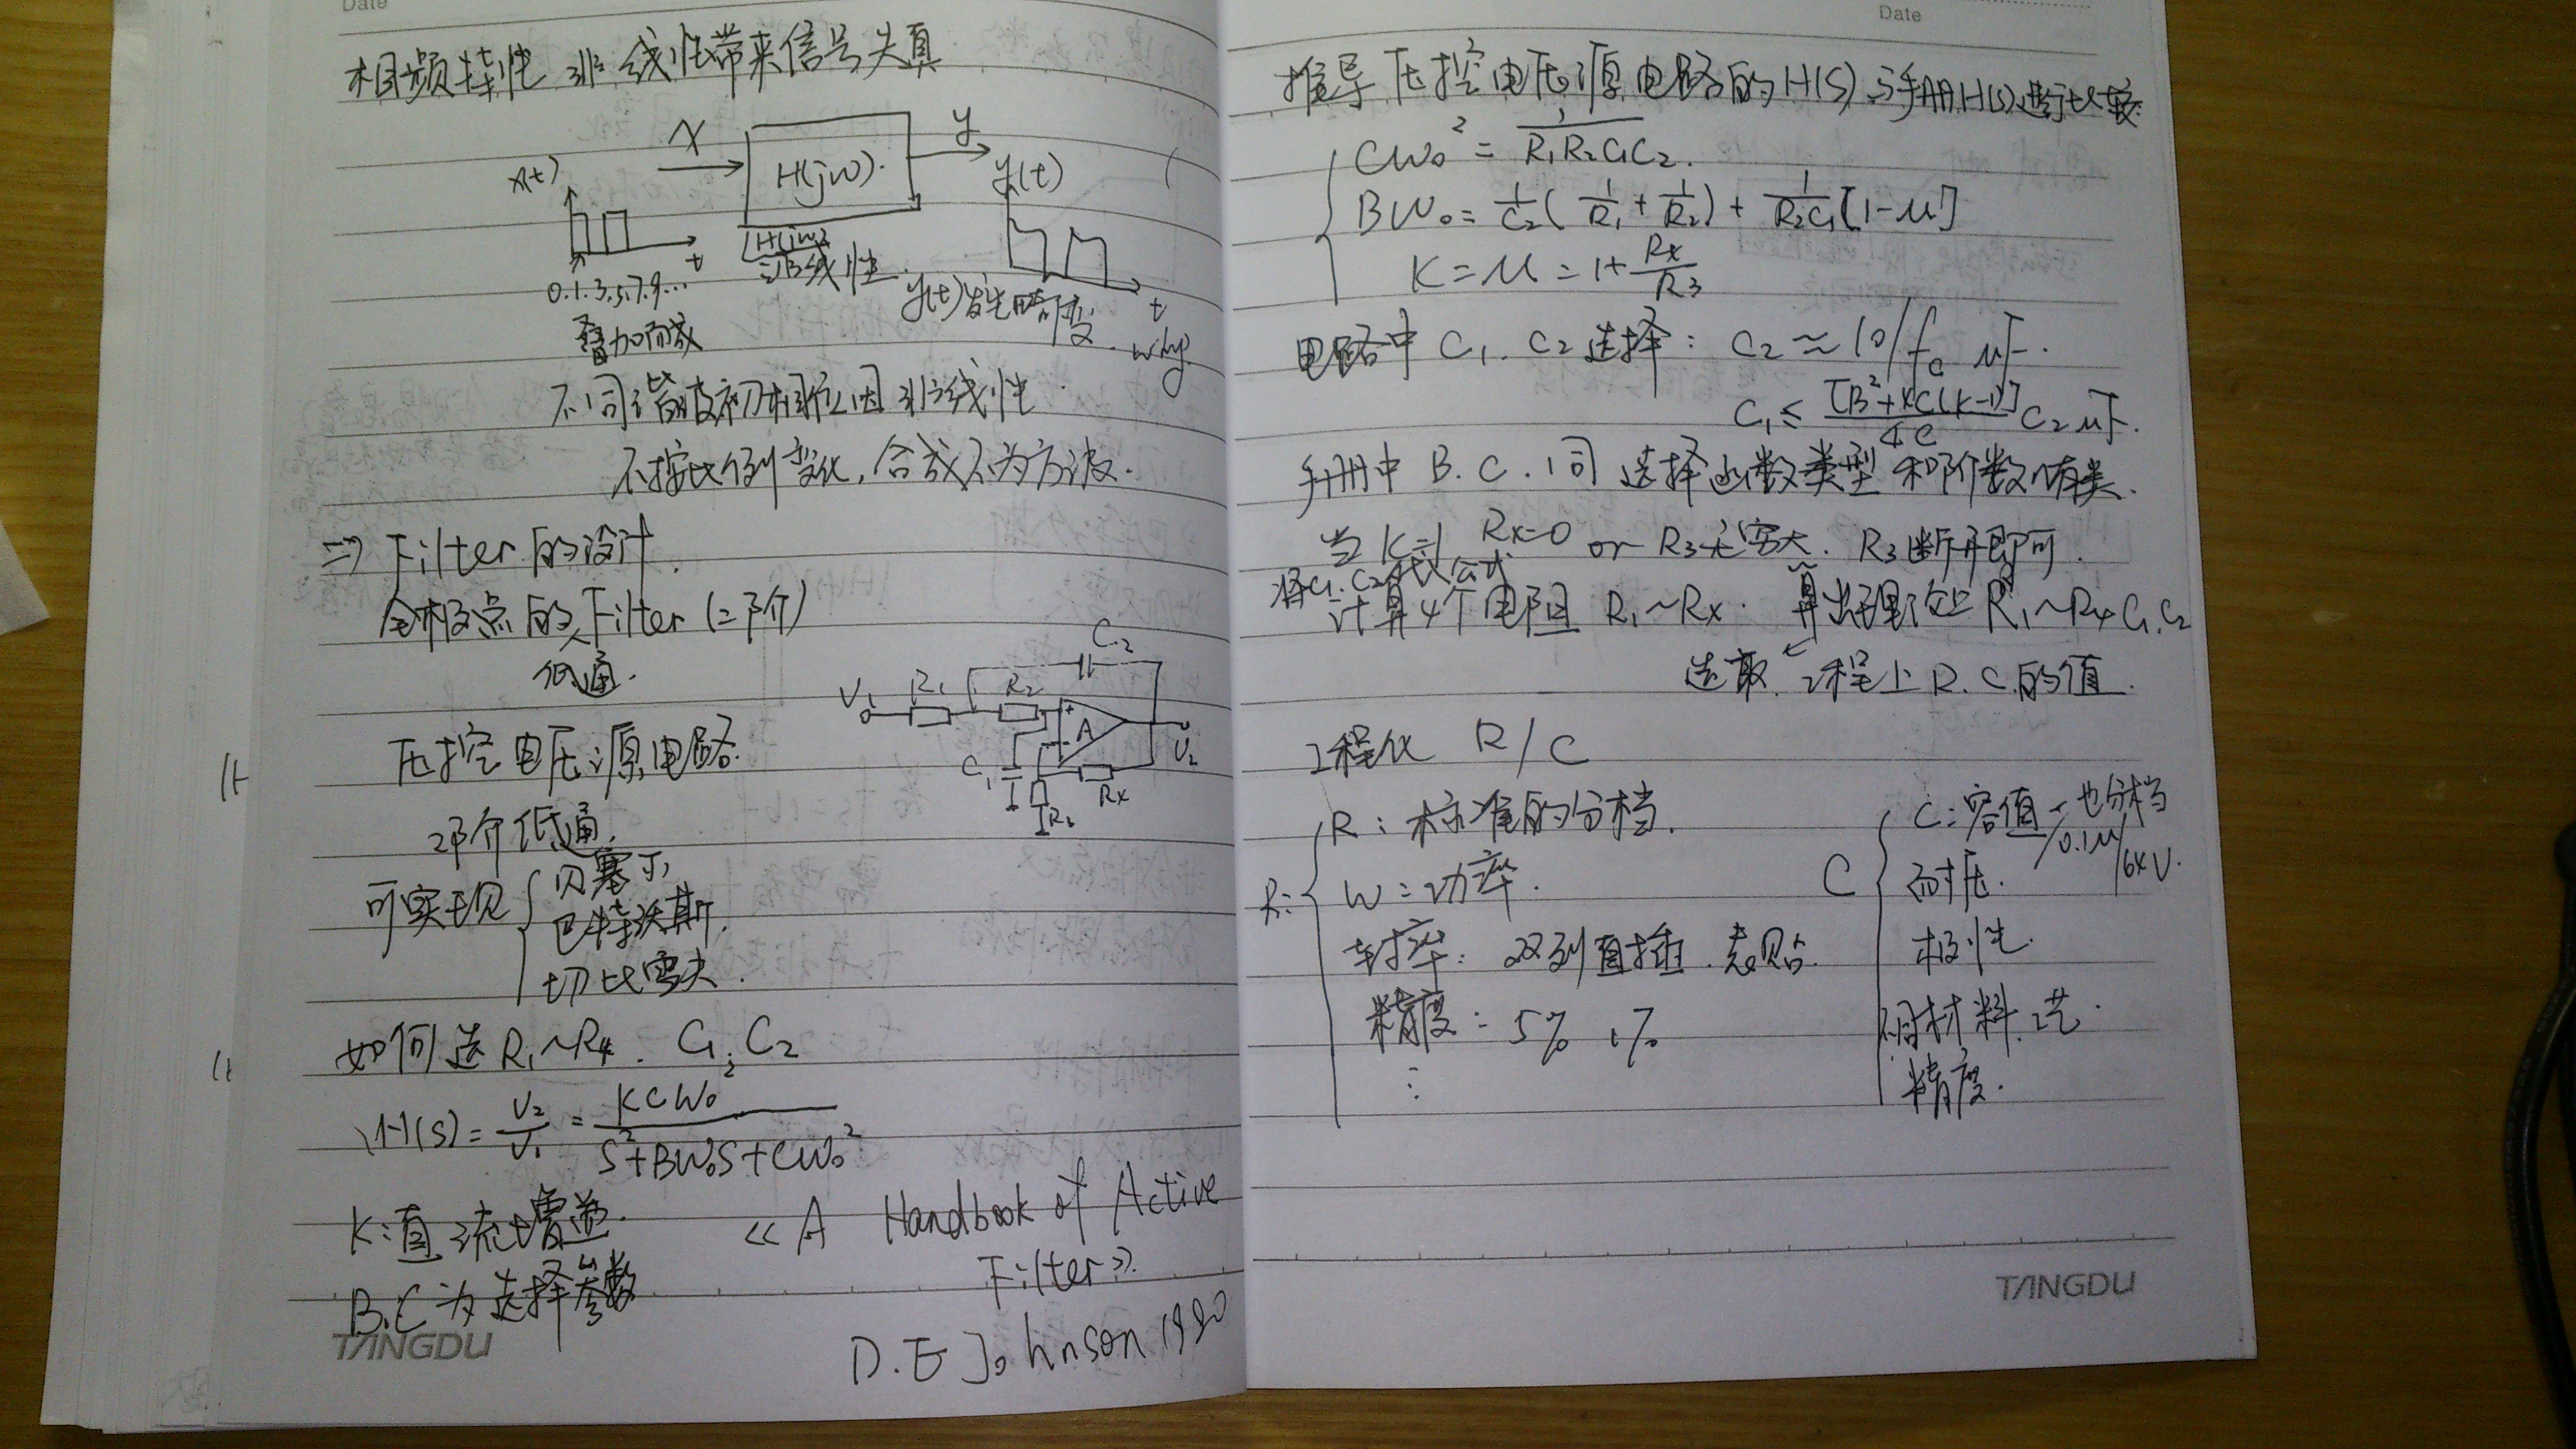 Date
相频特性 非线性带来信号失真
X
H(jω).
y
x(t)
t
0.1.3.5.7.9...
叠加而成
非线性.
y(t)
t
y(t)发生畸变.
why
不同谐波初相位因非线性
不按比例变化,合成不为方波.
=> Filter 的设计.
全极点的Filter (二阶)
低通.
V1
R1
R2
C2
A
V2
C1
R3
Rx
压控电压源电路
2阶低通.
可实现
贝塞尔
巴特沃斯.
切比雪夫.
如何选 R1~R4. C1. C2
H(s) = V2/V1 = KCω0²/(S²+Bω0S+Cω0²)
K:直流增益.
B.C 为选择参数
<< A Handbook of Active
Filter >>
D.E Johnson 1980
TANGDU
Date
推导压控电压源电路的H(S) 与手册H(s)进行比较
Cω0² = 1/(R1R2C1C2).
Bω0 = 1/C2(1/R1 + 1/R2) + 1/(R2C1)[1-μ]
K = μ = 1+Rx/R3
电路中 C1. C2 选择: C2 ≈ 10/fc μF.
C1 ≤ [B²+4C(K-1)]/4C C2 μF.
手册中 B. C. 同 选择函数类型和阶数有关.
当 K=1 Rx=0 or R3无穷大. R3断开即可.
将C1.C2代入公式
计算4个电阻 R1~Rx. 算出理论上 R1~R4 C1.C2
选取 工程上 R. C.的值.
工程化 R/C
R:
R: 标准的分档.
W: 功率.
封装: 双列直插. 表贴.
精度: 5% 1%
⋮
C
C: 容值 - 也分档
/0.1μ/6xV.
耐压.
极性.
不同材料工艺.
精度.
TANGDU